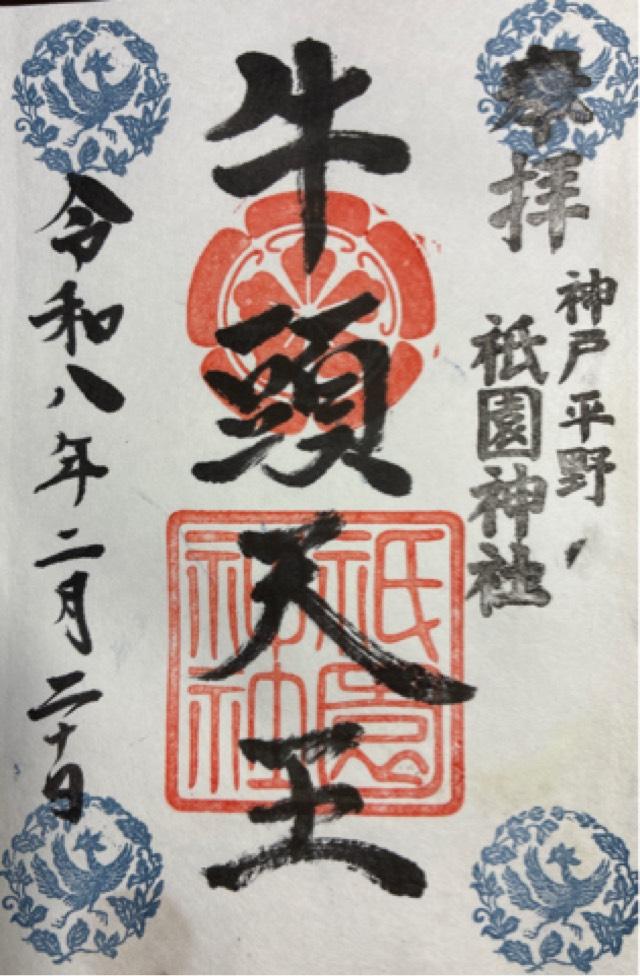 奉拝
神戸平野
祇園神社
牛頭天王
祇園
神社
令和八年二月二十日